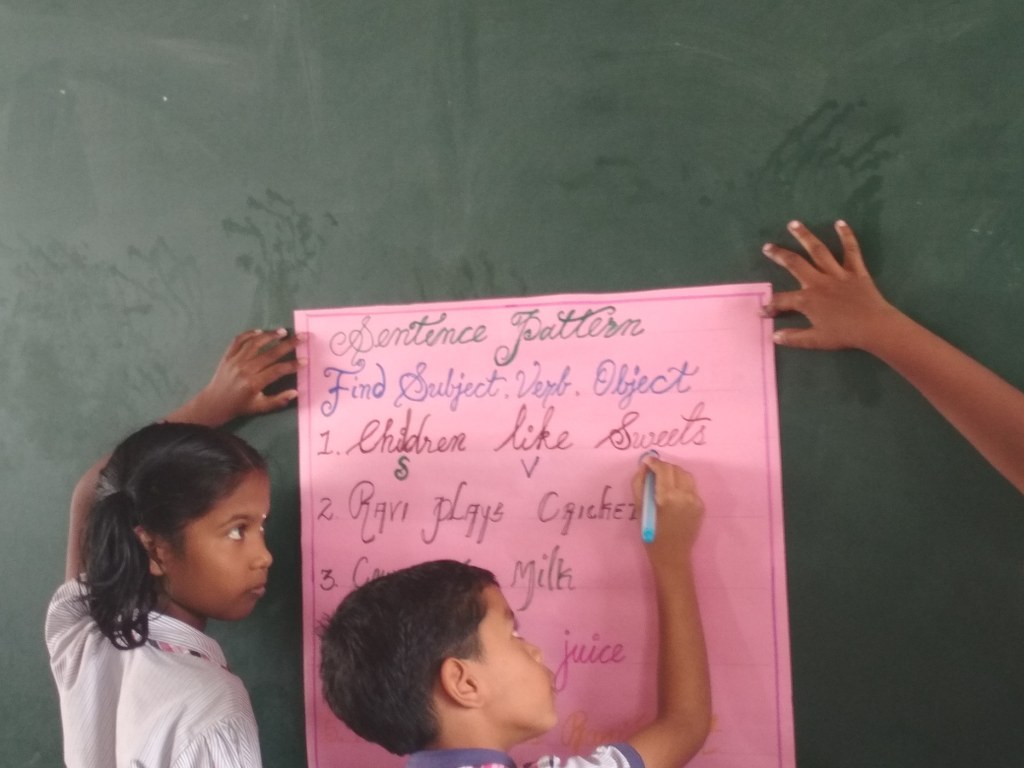 Sentence Pattern
Find Subject. Verb. Object
1. Children like Sweets
S V
2. Ravi plays Cricket
3. Milk
juice